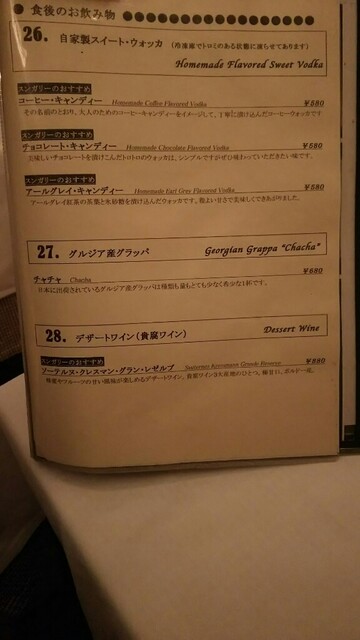 食後のお飲み物
26. 自家製スイート・ウォッカ (冷凍庫でトロミのある状態に凍らせてあります)
Homemade Flavored Sweet Vodka
スンガリーのおすすめ
コーヒー・キャンディー Homemade Coffee Flavored Vodka ¥580
その名前のとおり、大人のためのコーヒーキャンディーをイメージして、丁寧に漬け込んだコーヒーウォッカです
スンガリーのおすすめ
チョコレート・キャンディー Homemade Chocolate Flavored Vodka ¥580
美味しいチョコレートを漬けこんだトロトロのウォッカは、シンプルですがぜひ味わっていただきたい味です。
スンガリーのおすすめ
アールグレイ・キャンディー Homemade Earl Grey Flavored Vodka ¥580
アールグレイ紅茶の茶葉と氷砂糖を漬け込んだウォッカです。程よい甘さで美味しくできあがりました。
27. グルジア産グラッパ Georgian Grappa "Chacha"
チャチャ Chacha ¥680
日本に出荷されているグルジア産グラッパは種類も量もとても少なく希少な1杯です。
28. デザートワイン(貴腐ワイン) Dessert Wine
スンガリーのおすすめ
ソーテルヌ・クレスマン・グラン・レゼルブ Sauternes Kressmann Grande Reserve ¥880
蜂蜜やフルーツの甘い風味が楽しめるデザートワイン。貴腐ワイン3大産地のひとつ。極甘口。ボルドー産。